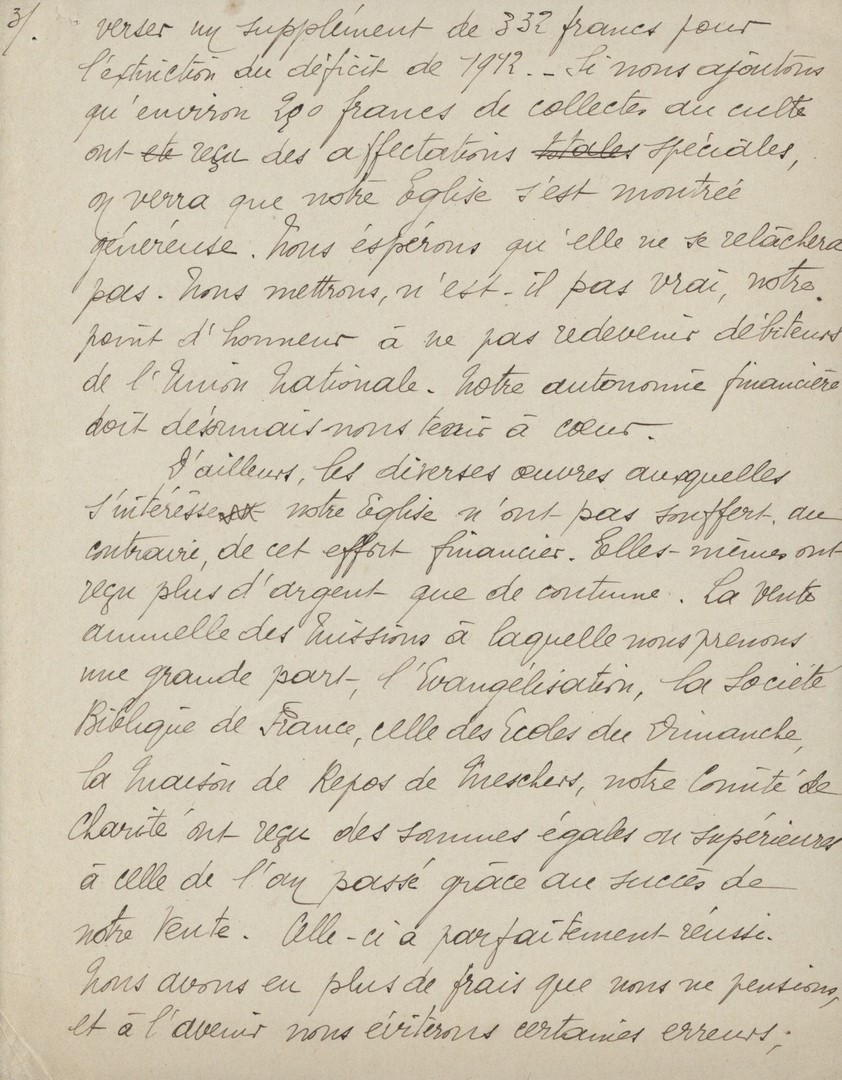 3/.
verser un supplément de 332 francs pour
l'extinction du déficit de 1912. - Si nous ajoutons
qu'environ 200 francs de collectes au culte
ont été reçu des affectations totales spéciales,
on verra que notre Eglise s'est montrée
généreuse. Nous espérons qu'elle ne se relâchera
pas. Nous mettrons, n'est-il pas vrai, notre
point d'honneur à ne pas redevenir débiteurs
de l'Union Nationale. Notre autonomie financière
doit désormais nous tenir à cœur.
D'ailleurs, les diverses œuvres auxquelles
s'intéresse notre Eglise n'ont pas souffert, au
contraire, de cet effort financier. Elles-mêmes ont
reçu plus d'argent que de coutume. La Vente
annuelle des Missions à laquelle nous prenons
une grande part, l'Evangélisation, la Société
Biblique de France, celle des Ecoles du Dimanche,
la Maison de Repos de Meschers, notre Comité de
Charité ont reçu des sommes égales ou supérieures
à celle de l'an passé grâce au succès de
notre Vente. Celle-ci a parfaitement réussi.
Nous avons eu plus de frais que nous ne pensions,
et à l'avenir nous éviterons certaines erreurs;